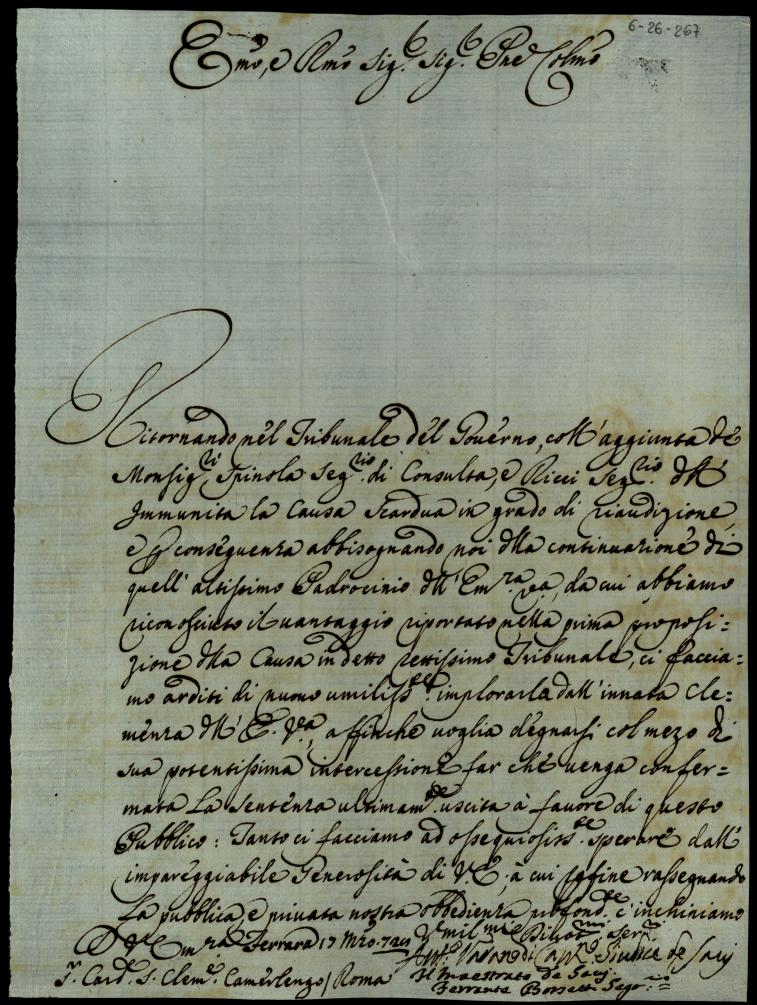 6-26-267
Emo, e Rmo Sig.r Sig.r Pne Colmo
Ritornando nel Tribunale del Governo, coll'aggiunta de
Monsig.ri Spinola Seg.rio di Consulta, e Ricci Seg.rio dell'
Immunita la Causa Scardua in grado di riaudizione,
e p conseguenza abbisognando noi dlla continuazione di
quell' altissimo Padrocinio dll' Em.ra va, da cui abbiamo
riconosciuto il vantaggio riportato nella prima proposi=
zione dlla Causa in detto rettissimo Tribunale, ci faccia=
mo arditi di nuovo umiliss.te implorarla dall'innata Cle=
menza dll' E. Va, affinche voglia degnarsi col mezo di
sua potentissima intercessione far che venga confer=
mata la Sentenza ultimam.te uscita à favore di questo
Pubblico: Tanto ci facciamo ad ossequiosiss.te sperare dall'
impareggiabile Generosità di V.E., à cui p fine rassegnando
la pubblica, e privata nostra obbedienza profond.te c'inchiniamo
D V Em.ra Ferrara 17 Mrzo Vmil.mi Divot.mi Ser.ri
Giudice de Savj
Card. S. Clem.te Camerlengo / Roma Il Maestrato de Savj
Ferrante Borsetti Seg.rio